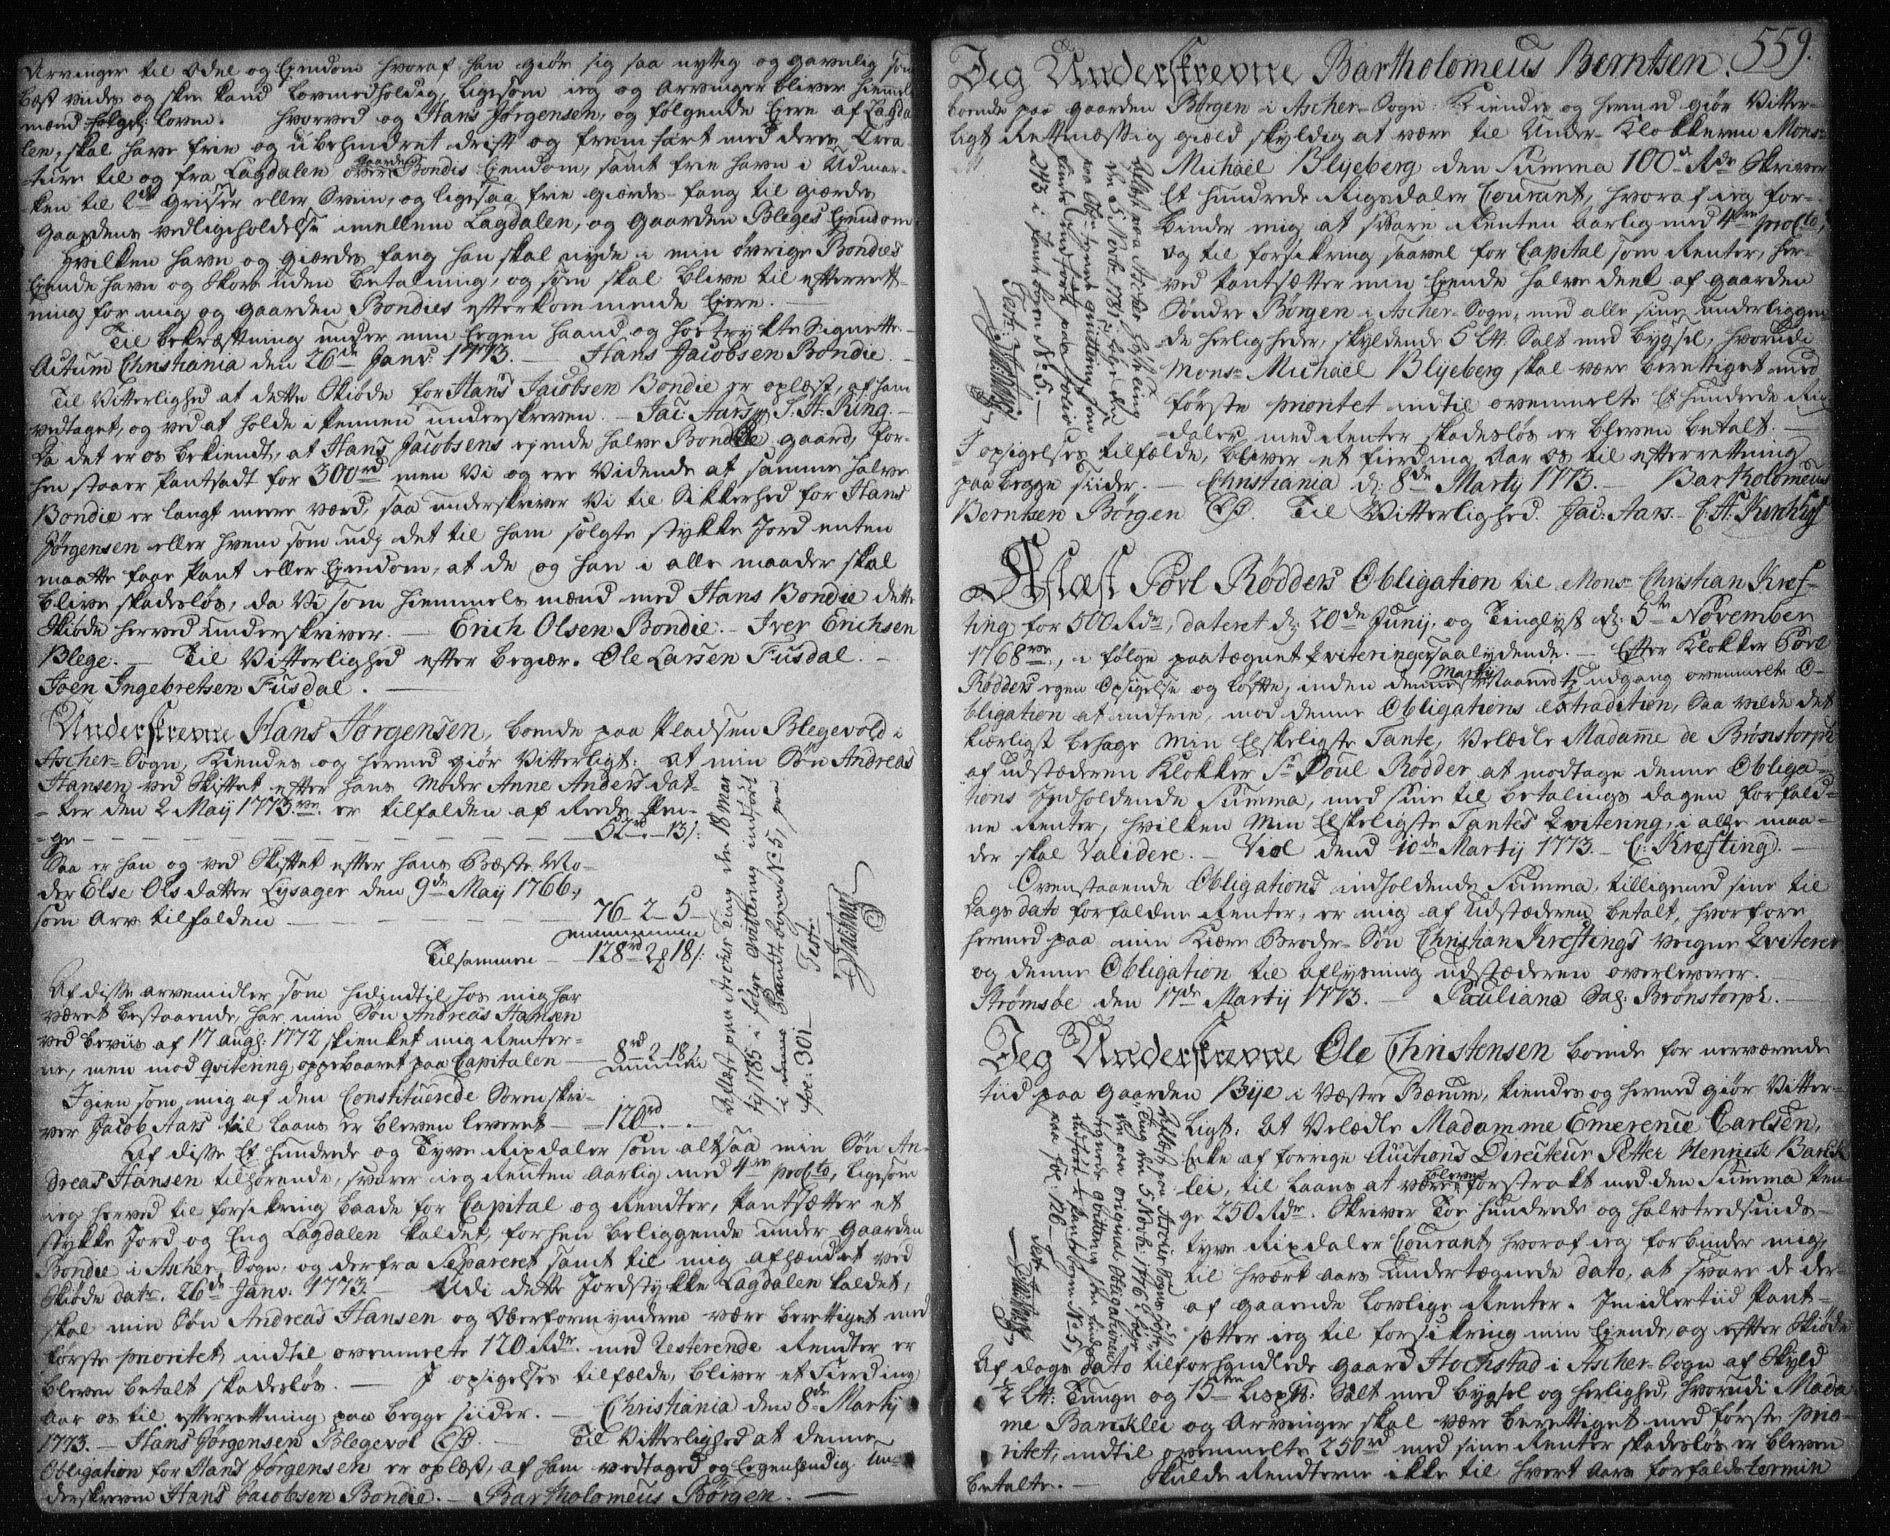 Arvinger til Odel og Ejendom hvoraf han giør sig saa nyttig og gavnlig som
bæst vides og skee kand lovmedholdig, ligesom jeg og Arvinger bliver hiemmels
mænd følge: loven. Hvorved og Hans Jørgensen, og følgende Ejere af Lagda-
len, skal have frie og ubehindret drift og fremfart med deres Crea-
ture til og fra Lagdalen over Gaarden Bondis Ejendom, samt frie havn i Udmar-
ken til 2de Griser eller Sviin, og ligesaa frie gierde-fang til gierde
Gaardens vedligeholdelse imellem Lagdalen, og Gaarden Bleges Ejendom.
Hvilken havn og gierde fang han skal nyde i min øvrige Bondies
Ejende havn og Skov uden betaling, og som skal blive til efterrett-
ning for mig og Gaarden Bondies efterkommende Ejere. —
Til bekræftning under min Egen haand og hostrykte Signette.
Actum Christiania den 26de Janv: 1773. — Hans Jacobsen Bondie. —
Til Vitterlighed at dette Skiøde for Hans Jacobsen Bondie er oplæst, af ham
vedtaget, og ved at holde i Pennen underskreven. — Jac: Aars. S. H. Ring. —
Da det er os bekiendt, at Hans Jacobsens ejende halve Bondie gaard, for-
hen staaer Pantsadt for 300rd men Vi og ere Vidende at samme halve
Bondie er langt meere værd, saa underskriver Vi til Sikkerhed for Hans
Jørgensen eller hvem som udj det til ham solgte stykke Jord enten
maatte faae Pant eller Ejendom, at de og han i alle maader skal
blive skadesløs, da Vi som hiemmels mænd med Hans Bondie dette
Skiøde herved underskriver. — Erich Olsen Bondie. — Iver Erichsen
Blege. — Til Vitterlighed efter begiær. Ole Larsen Fusdal. —
Joen Ingebretsen Fusdal. —
Underskrevne Hans Jørgensen, boende paa Pladsen Blegevold i
Ascher-Sogn, Kiendes og hermed giør Vitterligt: at min Søn Andreas
Hansen ved Skiftet efter hans Moder Anne Anders dat-
ter den 2 Maij 1773 er tilfalden af Rede Pen-
ge — 52rd — 13/:
Saa er han og ved Skiftet efter hans Bæste Mo-
der Else Olsdatter Lysager den 9de Maij 1766,
som Arv tilfalden — 76 — 2 — 5 —
Tilsammen — 128rd 2 18/:
Af disse arvemidler, som hidindtil hos mig har
været bestaaende, har min Søn Andreas Hansen
ved beviis af 17 aug: 1772 skienket mig Renter-
ne, men mod qvitering oppebaaret paa Capitalen — 8rd — 2 — 18/
Igien som mig af den Constituerede Sorenskri-
ver Jacob Aars til Laans er bleven leveret — 120rd —
Af disse Et hundrede og Tyve Rixdaler som altsaa min Søn An-
dreas Hansen tilhørende, svarer ieg Renten aarlig med 4re proCto, ligesom
ieg herved til forsikring baade for Capital og Rendter, Pantsætter et
stykke Jord og Eng Lagdalen kaldet, forhen beliggende under Gaarden
Bondie i Ascher Sogn, og derfra Separeret samt til mig afhændet ved
Skiøde dat: 26de Janv: 1773. — Udi dette Jordstykke Lagdalen kaldet,
skal min Søn Andreas Hansen og Oberformynderen være berettiget med
første prioritet indtil ovenmelte 120 Rdr. med Resterende Rendter er
bleven betalt skadesløs. — I opsigelses tilfælde, bliver et Fierding
Aar os til efterretning paa begge siider. — Christiania den 8de Martij
1773. — Hans Jørgensen Blegevol — Til Vitterlighed at denne
Obligation for Hans Jørgensen er oplæst, af ham vedtaged og Egenhendig un-
derskreven Hans Jacobsen Bondie. — Bartholomeus Børgen. —
Aflæst paa Ascher Ting den 18 Mar
tij 1785 i følge Qvittering indført
i denne Pandte bogens No 5, paa
foe: 301 — Test:
559.
Jeg Underskrevne Bartholomeus Berntsen.
boende paa gaarden Børgen i Ascher-Sogn: Kiendes og hermed giør Vitter-
ligt Rettmæssig gield skyldig at være til Under-Klokkeren Mons-
Michael Blyeberg den Summa 100de Rdr Skriver
Et hundrede Rigsdaler Courant, hvoraf ieg for-
binder mig at svare Renten aarlig med 4re proCto,
og til forsikring saavel for Capital som Renter, her-
ved Pantsætter min Ejende halve deel af gaarden
Søndre Børgen i Ascher-Sogn, med alle sine underliggen-
de herligheder, skyldende 5 Ltt. Salt med bygsel, hvorudi
Mons- Michael Blyeberg skal være berettiget med
første prioritet indtil ovenmelte Et hundrede Rix
daler, med Renter skadesløs er bleven betalt. —
I opsigelses tilfælde, bliver et fierding Aar os til efterrettning
paa begge siider. — Christiania d: 8de Martij 1773. — Bartholomeus
Berntsen Børgen Til Vitterlighed. Jac: Aars —
Aflæst paa Ascher Høste Ting
den 5 Novbr. 1781 i følge den
paa Obligationen givne quittering, som
findes indført paa folio
293 i Pantebogen No 5. —
Test:
Aflæst Povl Rødders Obligation til Mons- Christian Kref-
ting for 500 Rdr, dateret d: 20de Junij, og Tinglyst d: 5te November
1768, i følge paategnet Qviteringer saalydende. — Efter Klokker Povl
Rødders egen Opsigelse og løfte, inden denne Martij Maaneds udgang ovenmelte O-
bligation at indfrie, mod denne Obligations Extradition, Saa vilde det
kierligst behage Min Elskeligste Tante, Velædle Madame de Brønstorph
af udstæderen Klokker Sr Poul Rødder at modtage denne Obliga-
tions Indholdende Summa, med sine til betalings dagen forfald-
ne Renter, hvilken Min Elskeligste Tantes Qvitering, i alle maa-
der skal Validere. — Viol dend 10de Martij 1773 — C: Krefting. —
Ovenstaaende Obligations indholdende Summa, tilligemed sine til
Dags dato forfaldne Renter, er mig af Udstæderen betalt, hvorfore
hermed paa min Kiære Broder-Søn Christian Kreftings vegne Qviterer
og denne Obligation til aflysning udstæderen overleverer.
Strømsøe den 17de Martij 1773. — Pauliana Sal: Brønstorph. —
Jeg Underskrevne Ole Christensen boende for nærværende
tiid paa gaarden Bye i Væstre Bærum, kiendes og hermed giør Vitter-
ligt: At Velædle Madamme Emerence Carlsen,
Enke af forrige Auctions Directeur Petter Hennich Barck
lei, til laans at være bleven forstrakt med den Summa Pen-
ge 250 Rdr. Skriver Toe hundrede og halvtredsinds-
tyve Rixdaler Courant hvoraf ieg forbinder mig,
til hvert aars undertegnede dato, at svare de der-
af gaaende lovlige Renter. Imidlertiid Pant-
sætter ieg til forsikring min Ejende, og efter Skiøde
Af dags dato tilforhandlede gaard Hochstad i Ascher-Sogn af Skyld
1/2 Ltt: Tunge og 15ten Lisptt: Salt med bygsel og herlighed, hvorudi Mada
me Barcklei og Arvinger skal være berettiget med første prio-
ritet, indtil ovenmelte 250rd med sine Renter skadesløs er bleven
betalte. — Skulde Rendterne ikke til hvert Aars forfalds termin
Aflæst paa Ascher
Ting den 5 Novbr: 1776 i følge
paa den original Obligationen
tegnede Qvittering som findes
indført i Pantebogen No 5,
paa foe: 126 — Test: